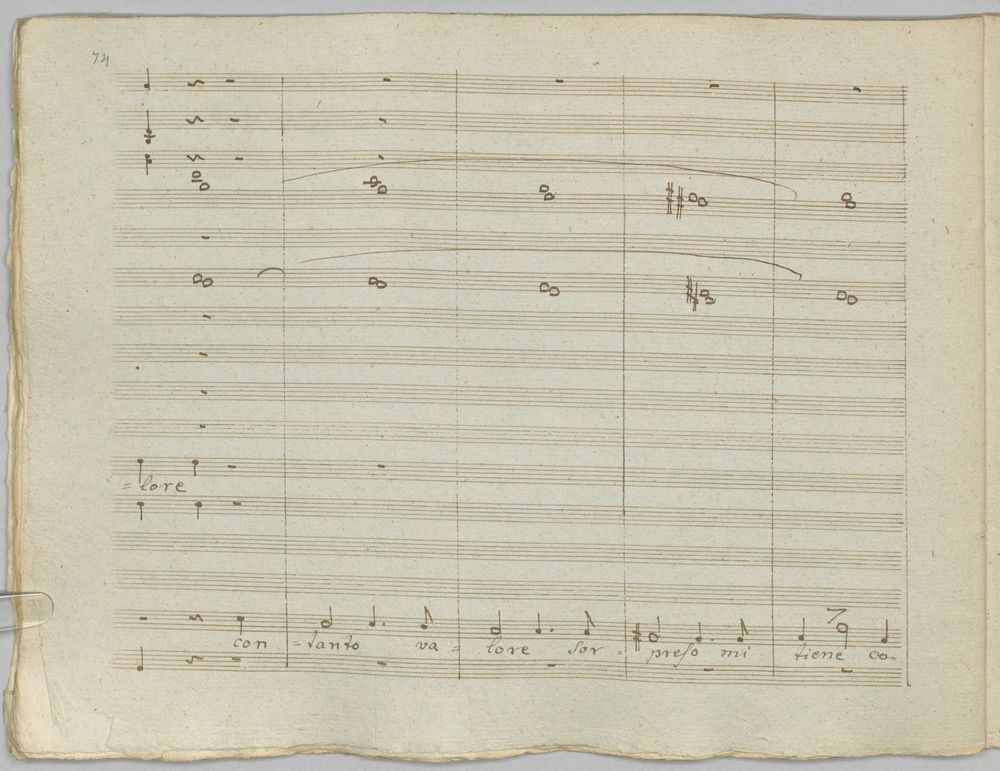 74
= lore
con = tanto va = lore sor = preso mi tiene co-